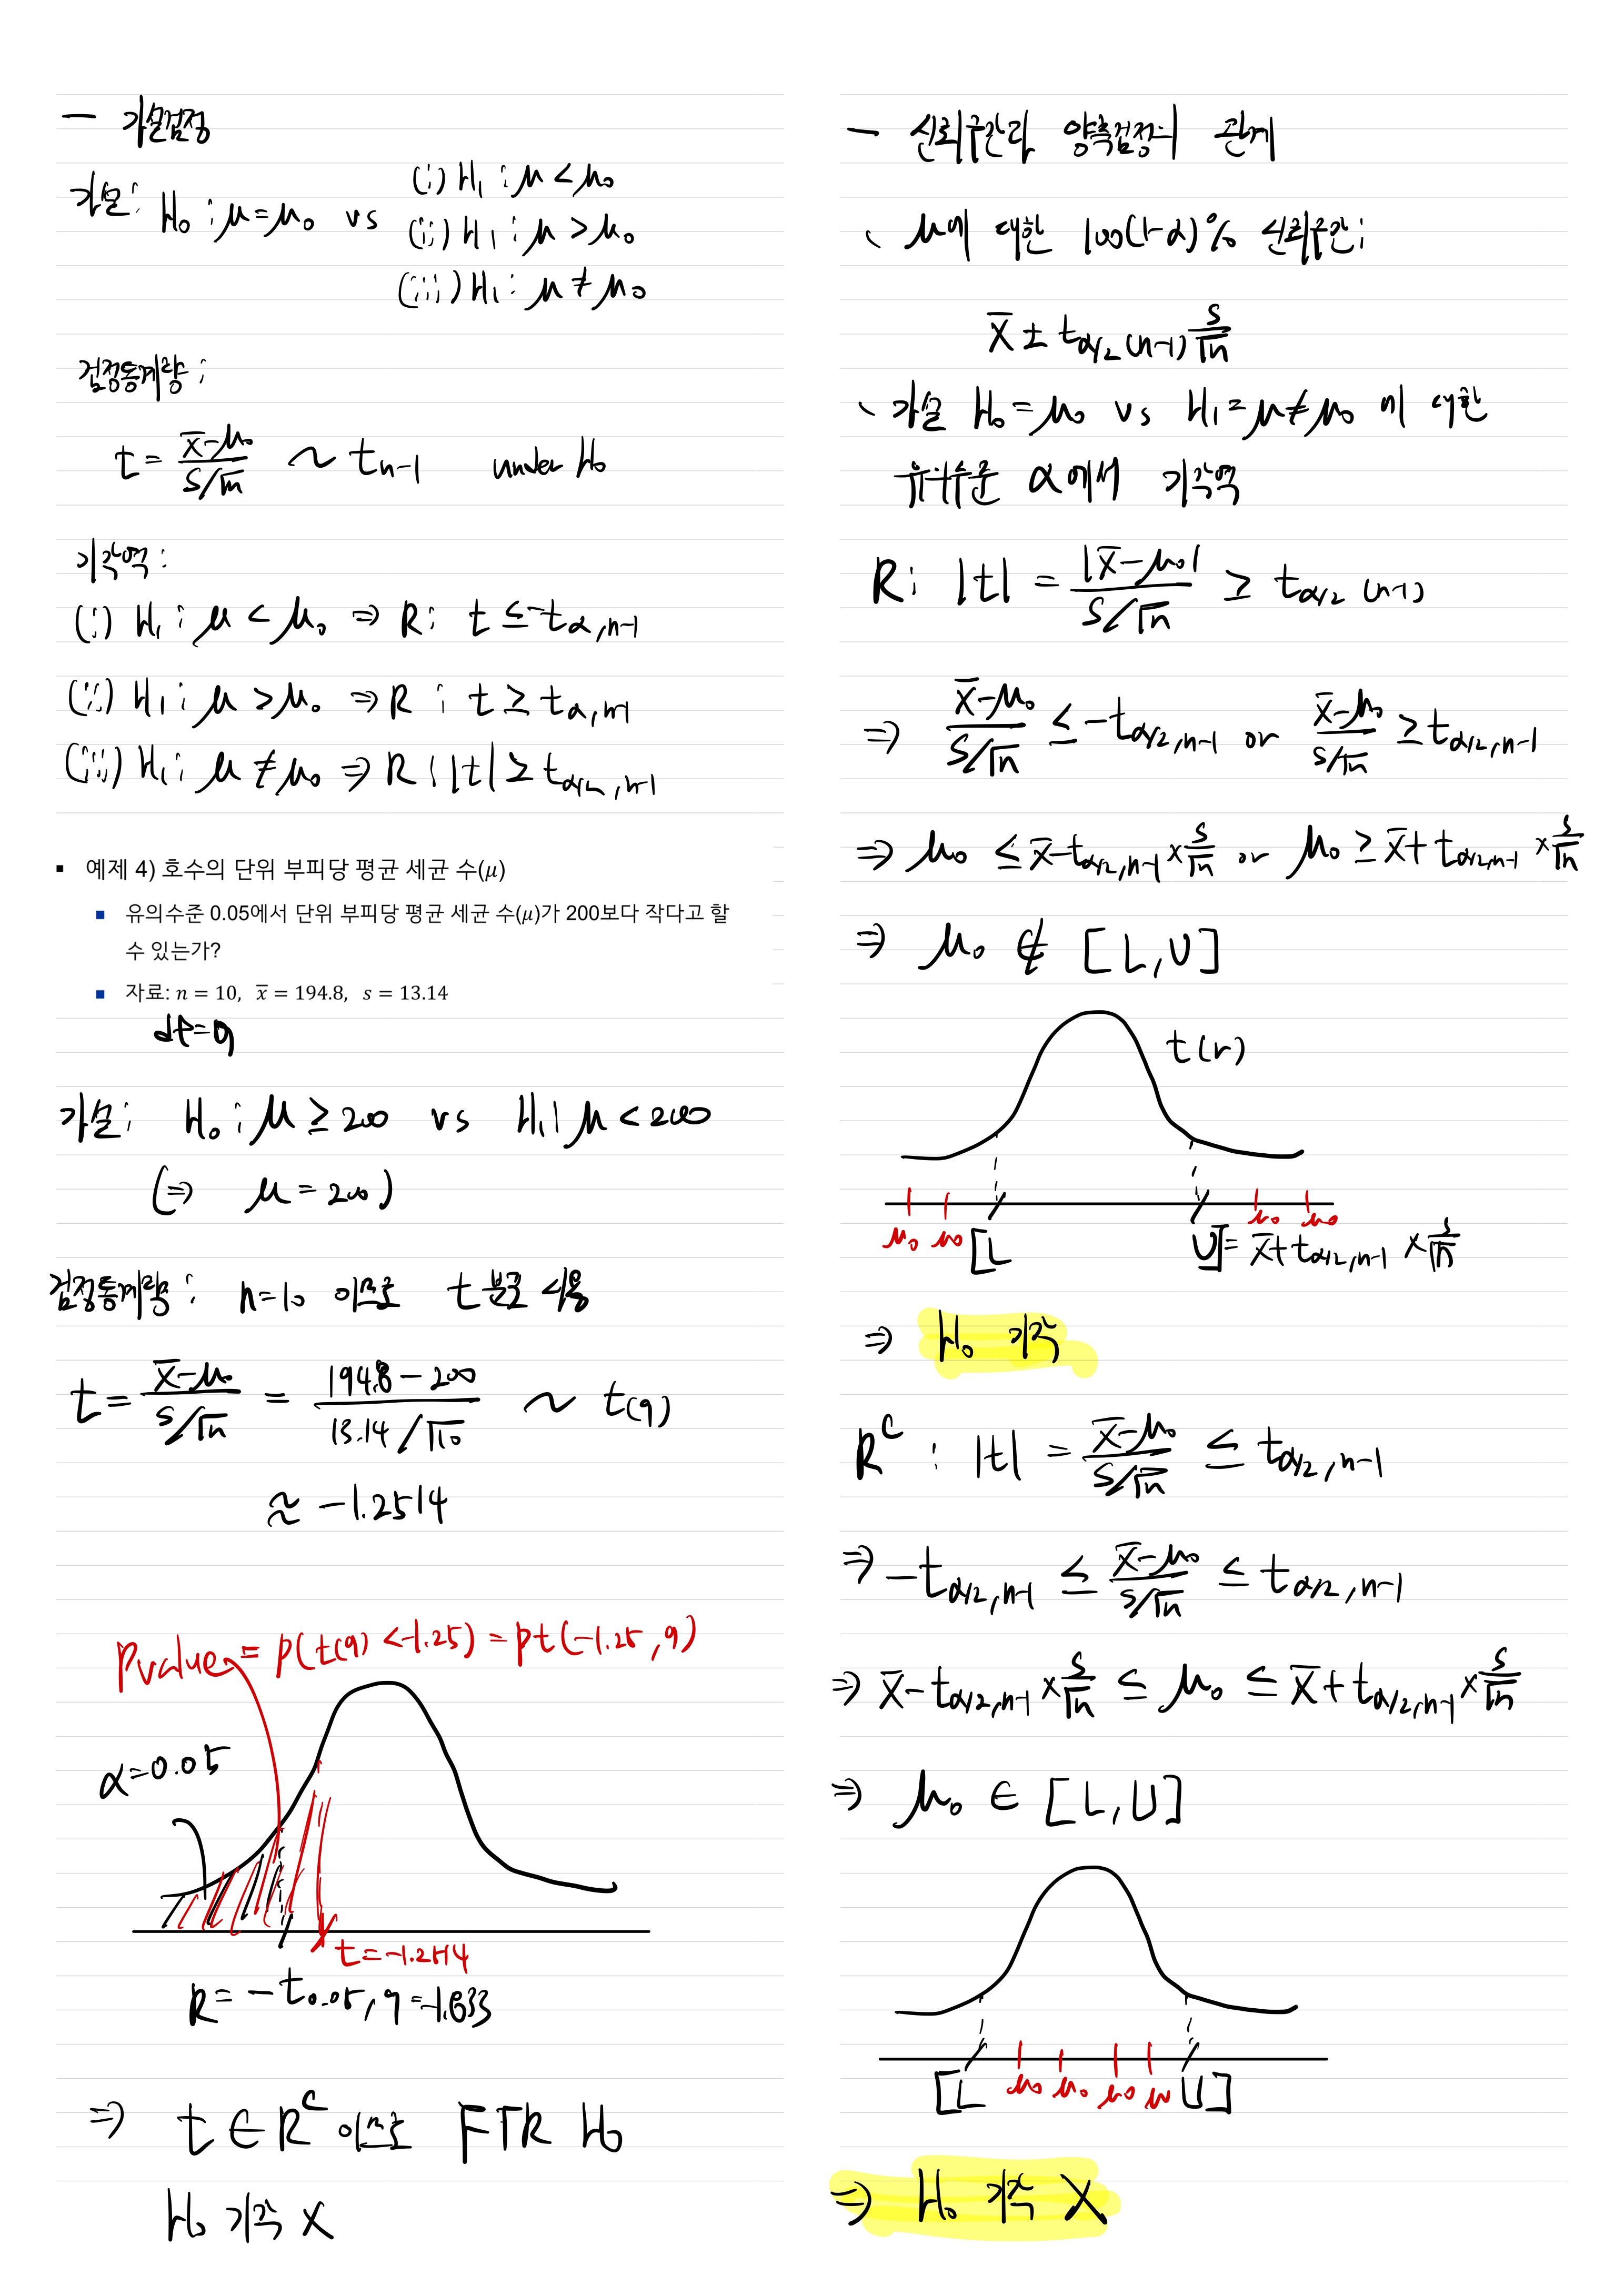 - 가설검정
가설: H₀: μ=μ₀ vs (i) H₁: μ<μ₀
(ii) H₁: μ>μ₀
(iii) H₁: μ≠μ₀
검정통계량:
t = (x̄-μ₀)/(s/√n) ~ t n-1 under H₀
기각역:
(i) H₁: μ<μ₀ ⇒ R: t ≤ -tα,n-1
(ii) H₁: μ>μ₀ ⇒ R: t ≥ tα,n-1
(iii) H₁: μ≠μ₀ ⇒ R: |t| ≥ tα/2,n-1
▪ 예제 4) 호수의 단위 부피당 평균 세균 수(μ)
▪ 유의수준 0.05에서 단위 부피당 평균 세균 수(μ)가 200보다 작다고 할
수 있는가?
▪ 자료: n = 10, x̄ = 194.8, s = 13.14
df=9
가설: H₀: μ≥200 vs H₁: μ<200
(⇒ μ=200)
검정통계량: n=10 이므로 t분포 사용
t = (x̄-μ₀)/(s/√n) = (194.8-200)/(13.14/√10) ~ t(9)
≈ -1.2514
Pvalue = P(t(9)<-1.25) = pt(-1.25,9)
α=0.05
t=-1.2514
R= -t0.05,9=-1.833
⇒ t∈Rᶜ 이므로 FTR H₀
H₀ 기각 X
- 신뢰구간과 양측검정의 관계
、 μ에 대한 100(1-α)% 신뢰구간:
x̄ ± tα/2(n-1) s/√n
、 가설 H₀=μ₀ vs H₁=μ≠μ₀ 에 대한
유의수준 α에서 기각역
R: |t| = |x̄-μ₀|/(s/√n) ≥ tα/2(n-1)
⇒ (x̄-μ₀)/(s/√n) ≤ -tα/2,n-1 or (x̄-μ₀)/(s/√n) ≥ tα/2,n-1
⇒ μ₀ ≤ x̄-tα/2,n-1 × s/√n or μ₀ ≥ x̄+tα/2,n-1 × s/√n
⇒ μ₀ ∉ [L,U]
t(r)
μ₀ μ₀ μ₀ μ₀
[L U]= x̄+tα/2,n-1 × s/√n
⇒ H₀ 기각
Rᶜ: |t| = (x̄-μ₀)/(s/√n) ≤ tα/2,n-1
⇒ -tα/2,n-1 ≤ (x̄-μ₀)/(s/√n) ≤ tα/2,n-1
⇒ x̄-tα/2,n-1 × s/√n ≤ μ₀ ≤ x̄+tα/2,n-1 × s/√n
⇒ μ₀ ∈ [L,U]
[L μ₀ μ₀ μ₀ μ U]
⇒ H₀ 기각 X